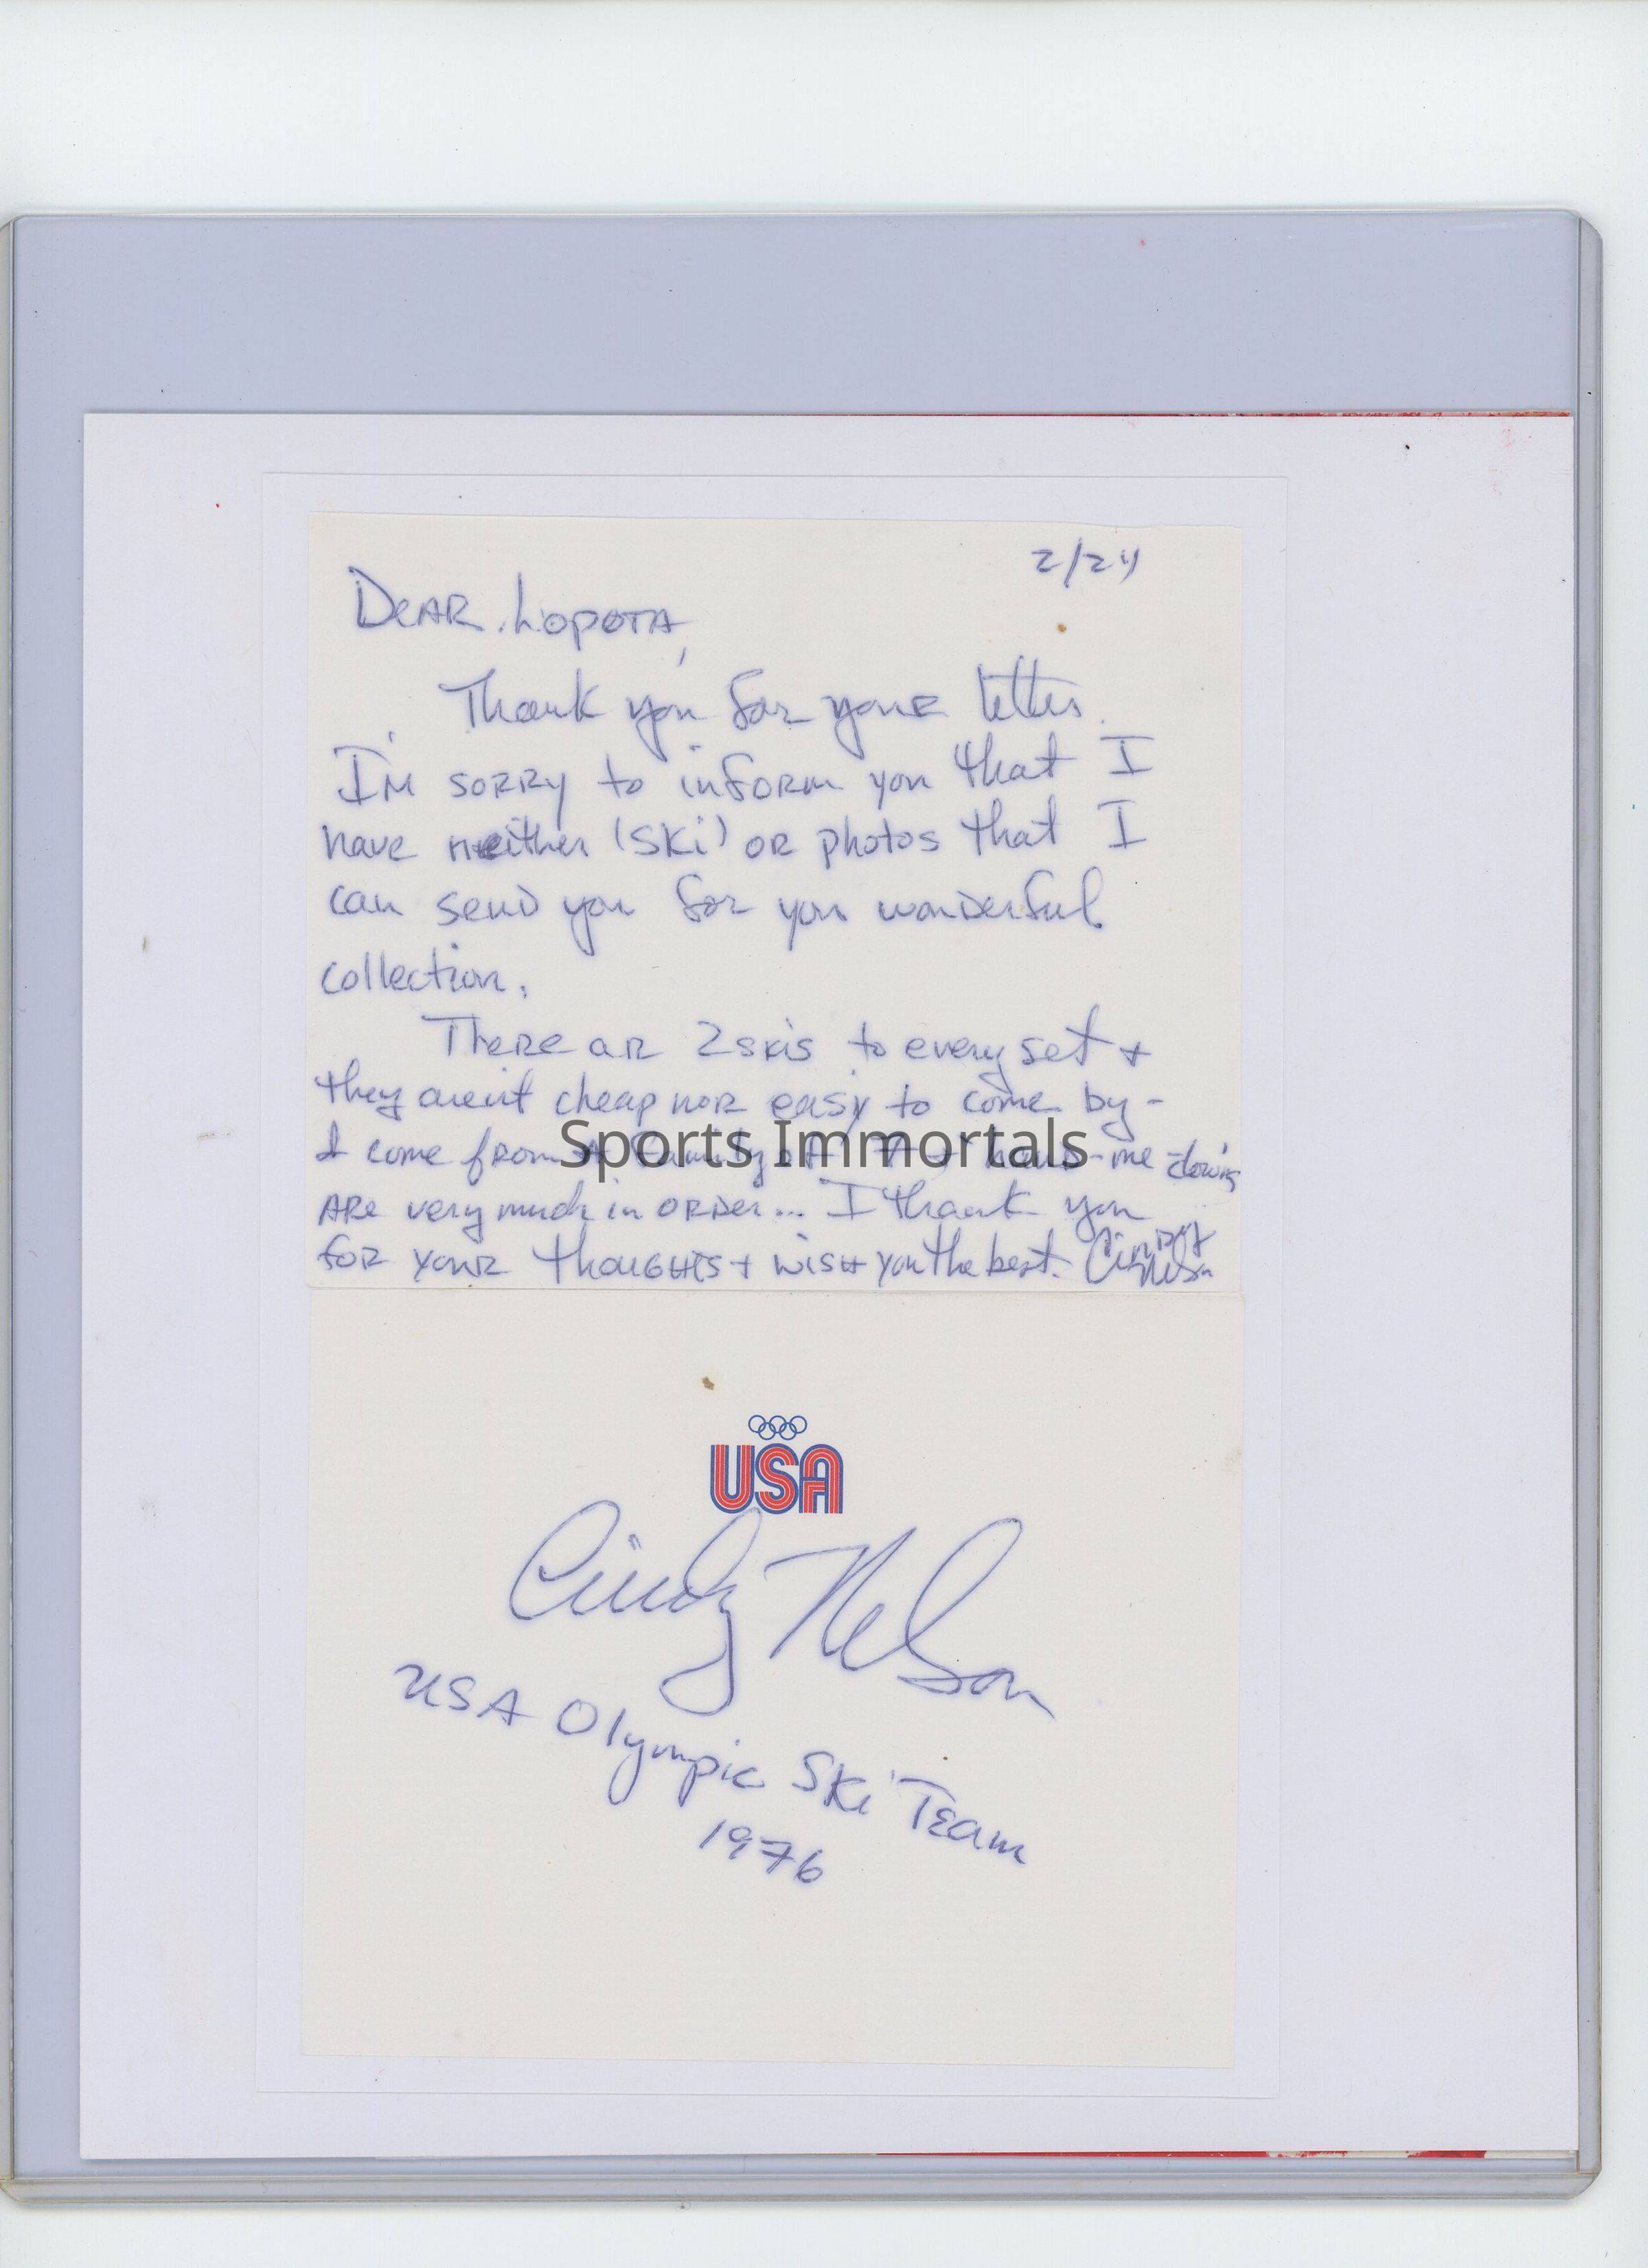 2/24
DeAR LOPOTA,
Thank you for youR letter.
I'M SORRY to inform you that I
have neither (SKi) OR photos that I
can send you for you wonderful
collection.
TheRe aR 2 skis to every set +
they aren't cheap noR easy to come by -
I come fRom A family of 7 + hand-me-downs
ARe very much in ORDer... I thank you
foR youR thouGHTS + wiSH you the best. Cindy Nelson
Sports Immortals
USA
Cindy Nelson
USA Olympic Ski Team
1976